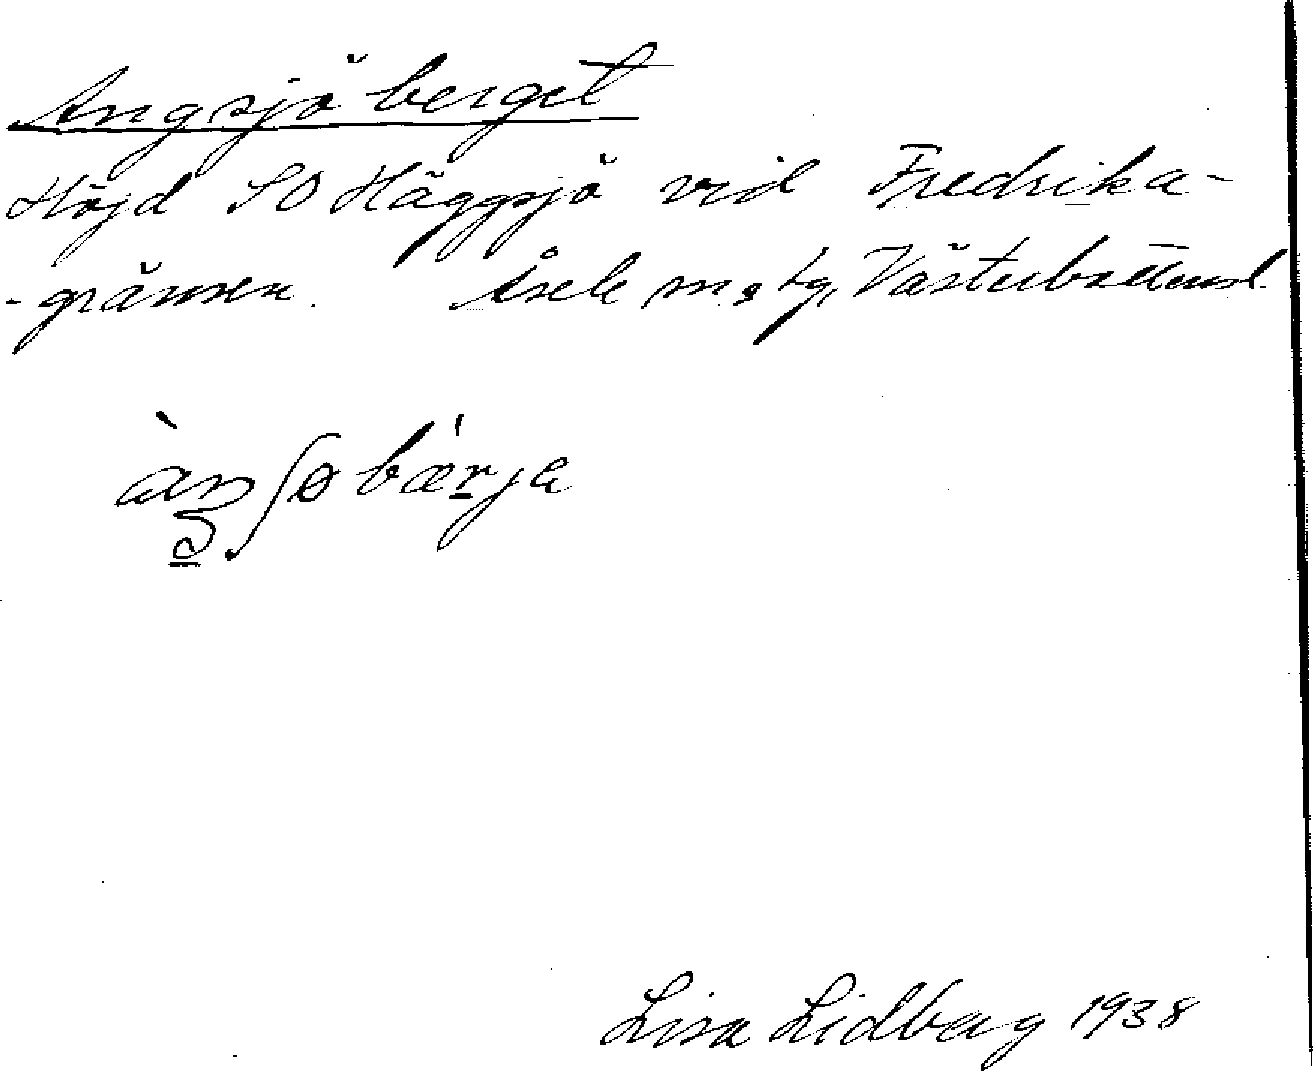 Angsjöberget
Höjd SO Häggsjö vid Fredrika-
-gränsen. Åsele m o tg, Västerbottensl.
àŋʃøbæ̀rja
Lisa Lidberg 1938